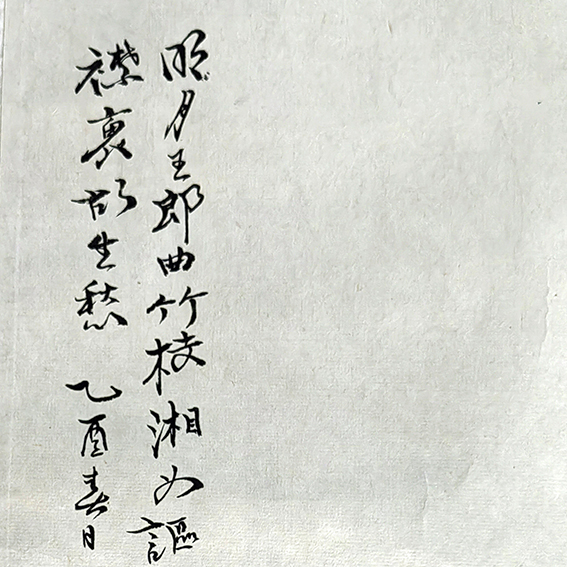 明月王郎曲竹枝湘女謳
襟裏胡生愁 乙酉春日